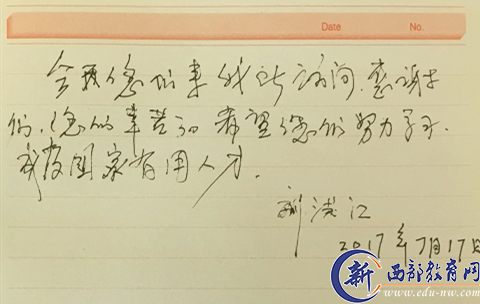 Date No.
您们来我访问.感谢
们.您们辛苦了 希望您们努力学习.
成为国家有用人才.
江
2017年7月17日
新 西部教育网
www.edu-nw.com